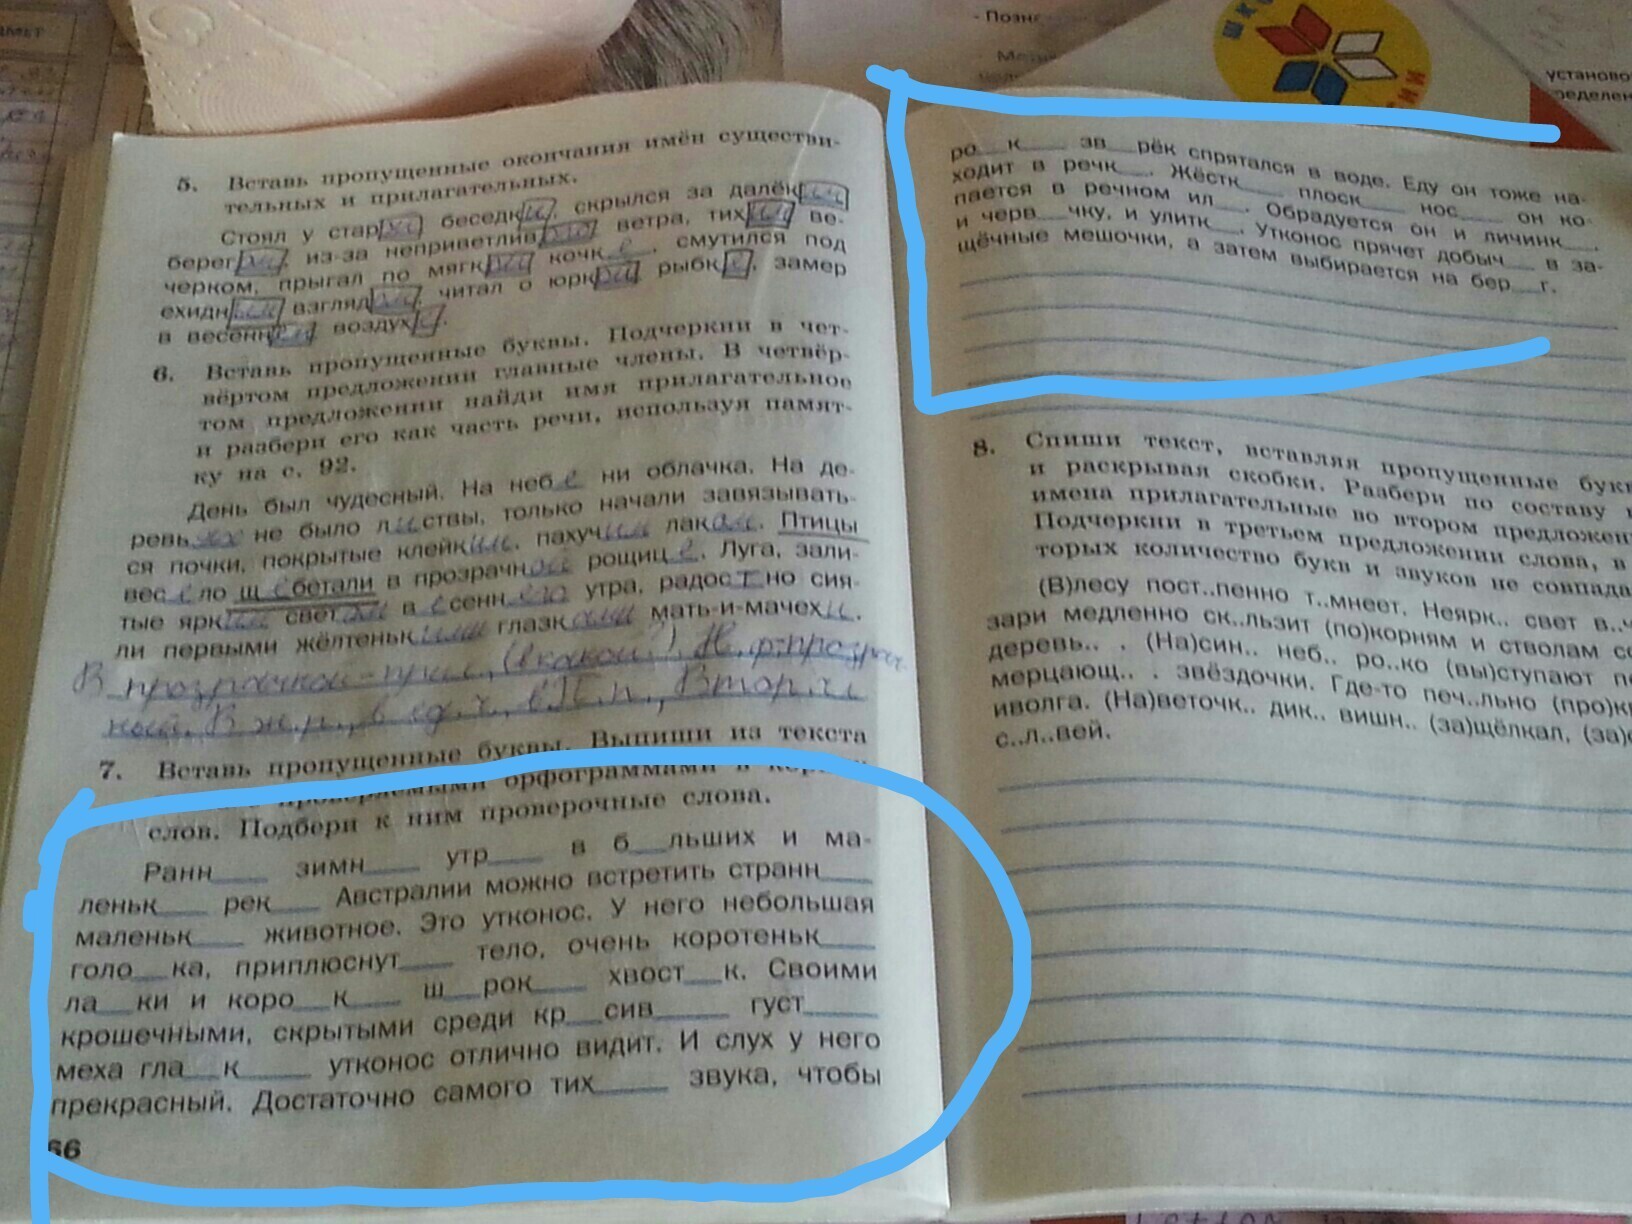 - Позн
ШК
установо
ределен
5. Вставь пропущенные окончания имён существи-
тельных и прилагательных.
Стоял у стар беседк, скрылся за далёк
берег, из-за неприветлив ветра, тих ве-
черком, прыгал по мягк кочке, смутился под
ехидн взгляд, читал о юрк рыбк, замер
в весенн воздух.
6. Вставь пропущенные буквы. Подчеркни в чет-
вёртом предложении главные члены. В четвёр-
том предложении найди имя прилагательное
и разбери его как часть речи, используя памят-
ку на с. 92.
День был чудесный. На небе ни облачка. На де-
ревьях не было листвы, только начали завязывать-
ся почки, покрытые клейким, пахучим лаком. Птицы
весело щебетали в прозрачной рощице. Луга, зали-
тые ярким светом весеннего утра, радостно сия-
ли первыми жёлтенькими глазками мать-и-мачехи.
В прозрачной - прил., (в какой?). Н. ф. - прозрач
ный. В ж.р., в ед.ч., в П.п., Втор. чл
7. Вставь пропущенные буквы. Выпиши из текста
проверяемыми орфограммами в
слов. Подбери к ним проверочные слова.
Ранн___ зимн___ утр___ в б__льших и ма-
леньк___ рек___ Австралии можно встретить странн___
маленьк___ животное. Это утконос. У него небольшая
голо__ка, приплюснут___ тело, очень коротеньк___
ла__ки и коро__к___ ш__рок___ хвост__к. Своими
крошечными, скрытыми среди кр__сив____ густ____
меха гла__к____ утконос отлично видит. И слух у него
прекрасный. Достаточно самого тих____ звука, чтобы
66
ро__к___ зв__рёк спрятался в воде. Еду он тоже на-
ходит в речк___. Жёстк___ плоск___ нос___ он ко-
пается в речном ил___. Обрадуется он и личинк___,
и черв__чку, и улитк___. Утконос прячет добыч___ в за-
щёчные мешочки, а затем выбирается на бер__г.
8. Спиши текст, вставляя пропущенные бук
и раскрывая скобки. Разбери по составу
имена прилагательные во втором предложен
Подчеркни в третьем предложении слова, в
торых количество букв и звуков не совпада
(В)лесу пост..пенно т..мнеет. Неярк.. свет в..ч
зари медленно ск..льзит (по)корням и стволам со
деревь.. . (На)син.. неб.. ро..ко (вы)ступают пе
мерцающ.. . звёздочки. Где-то печ..льно (про)кр
иволга. (На)веточк.. дик.. вишн.. (за)щёлкал, (за)с
с..л..вей.